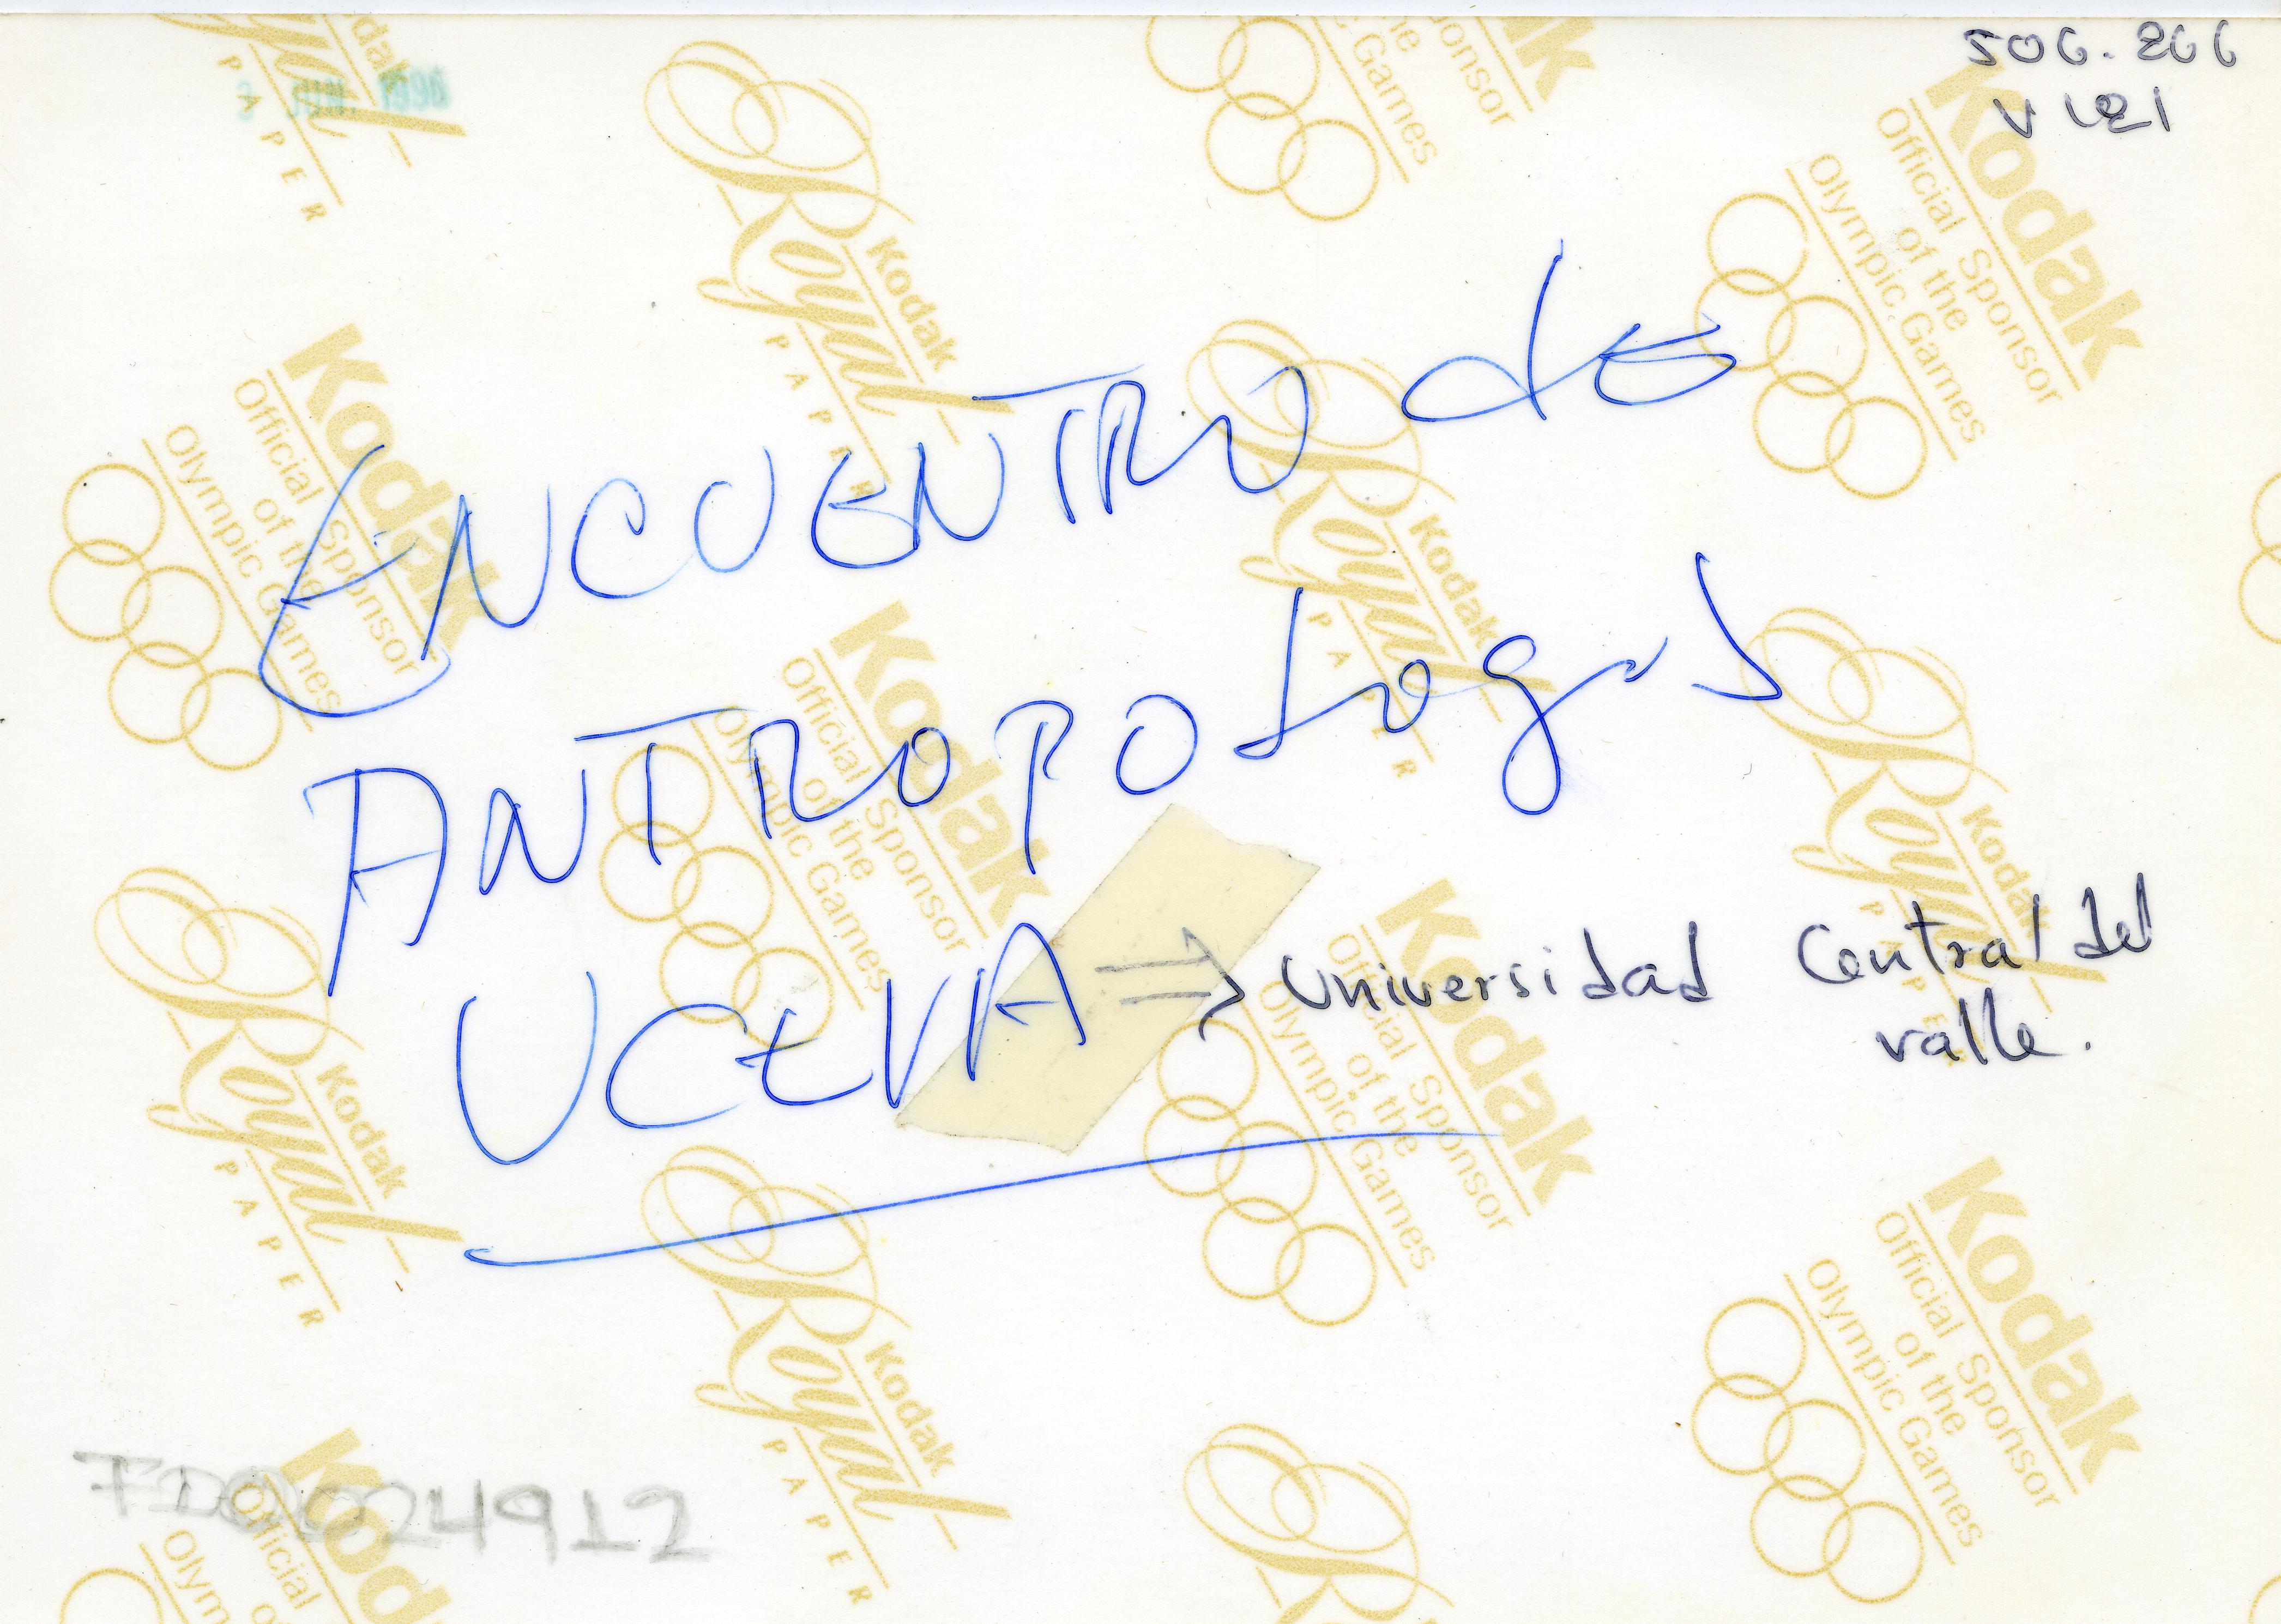 JUN. 1998
506.266
V121
ENCUENTRO de
ANTROPOLogos
UCEVA ⇒ Universidad Central del
valle.
FD0024912
Kodak
Official Sponsor
of the
Olympic Games
Royal
Kodak
PAPER